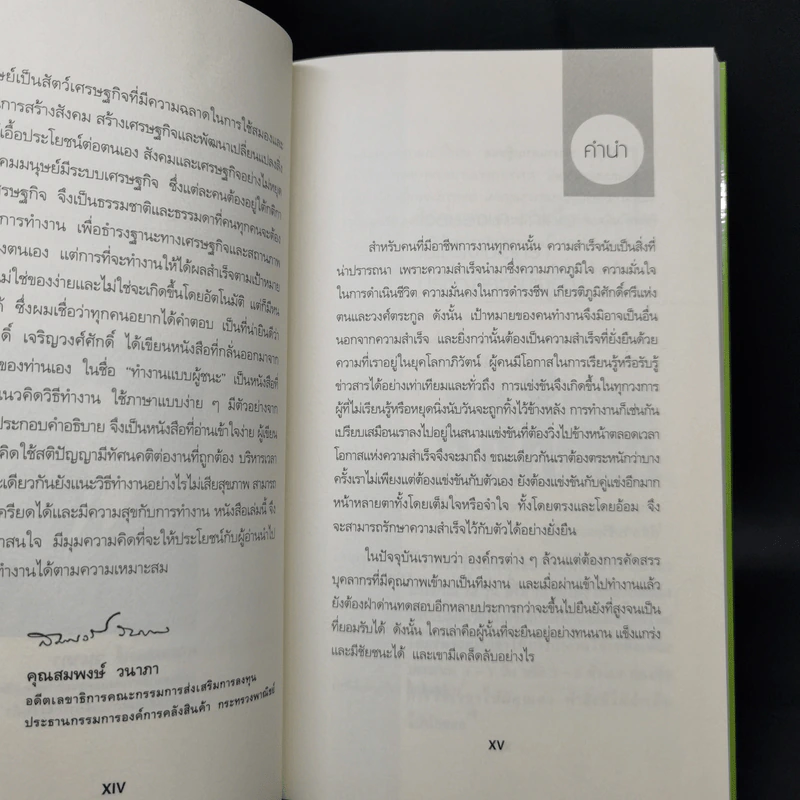 ษย์เป็นสัตว์เศรษฐกิจที่มีความฉลาดในการใช้สมองและ
นการสร้างสังคม สร้างเศรษฐกิจและพัฒนาเปลี่ยนแปลงสิ่ง
เอื้อประโยชน์ต่อตนเอง สังคมและเศรษฐกิจอย่างไม่หยุด
คมมนุษย์มีระบบเศรษฐกิจ ซึ่งแต่ละคนต้องอยู่ใต้กติกา
ศรษฐกิจ จึงเป็นธรรมชาติและธรรมดาที่คนทุกคนจะต้อง
การทำงาน เพื่อธำรงฐานะทางเศรษฐกิจและสถานภาพ
งตนเอง แต่การที่จะทำงานให้ได้ผลสำเร็จตามเป้าหมาย
ไม่ใช่ของง่ายและไม่ใช่จะเกิดขึ้นโดยอัตโนมัติ แต่ก็มีหน
ด้ ซึ่งผมเชื่อว่าทุกคนอยากได้คำตอบ เป็นที่น่ายินดีว่า
ดิ์ เจริญวงศ์ศักดิ์ ได้เขียนหนังสือที่กลั่นออกมาจาก
ของท่านเอง ในชื่อ "ทำงานแบบผู้ชนะ" เป็นหนังสือที่
แนวคิดวิธีทำงาน ใช้ภาษาแบบง่าย ๆ มีตัวอย่างจาก
ประกอบคำอธิบาย จึงเป็นหนังสือที่อ่านเข้าใจง่าย ผู้เขียน
คิดใช้สติปัญญามีทัศนคติต่องานที่ถูกต้อง บริหารเวลา
ะเดียวกันยังแนะวิธีทำงานอย่างไรไม่เสียสุขภาพ สามารถ
เครียดได้และมีความสุขกับการทำงาน หนังสือเล่มนี้ จึง
าสนใจ มีมุมความคิดที่จะให้ประโยชน์กับผู้อ่านนำไป
ทำงานได้ตามความเหมาะสม
คุณสมพงษ์ วนาภา
อดีตเลขาธิการคณะกรรมการส่งเสริมการลงทุน
ประธานกรรมการองค์การคลังสินค้า กระทรวงพาณิชย์
XIV
คำนำ
สำหรับคนที่มีอาชีพการงานทุกคนนั้น ความสำเร็จนับเป็นสิ่งที่
น่าปรารถนา เพราะความสำเร็จนำมาซึ่งความภาคภูมิใจ ความมั่นใจ
ในการดำเนินชีวิต ความมั่นคงในการดำรงชีพ เกียรติภูมิศักดิ์ศรีแห่ง
ตนและวงศ์ตระกูล ดังนั้น เป้าหมายของคนทำงานจึงมิอาจเป็นอื่น
นอกจากความสำเร็จ และยิ่งกว่านั้นต้องเป็นความสำเร็จที่ยั่งยืนด้วย
ความที่เราอยู่ในยุคโลกาภิวัตน์ ผู้คนมีโอกาสในการเรียนรู้หรือรับรู้
ข่าวสารได้อย่างเท่าเทียมและทั่วถึง การแข่งขันจึงเกิดขึ้นในทุกวงการ
ผู้ที่ไม่เรียนรู้หรือหยุดนิ่งนับวันจะถูกทิ้งไว้ข้างหลัง การทำงานก็เช่นกัน
เปรียบเสมือนเราลงไปอยู่ในสนามแข่งขันที่ต้องวิ่งไปข้างหน้าตลอดเวลา
โอกาสแห่งความสำเร็จจึงจะมาถึง ขณะเดียวกันเราต้องตระหนักว่าบาง
ครั้งเราไม่เพียงแต่ต้องแข่งขันกับตัวเอง ยังต้องแข่งขันกับคู่แข่งอีกมาก
หน้าหลายตาทั้งโดยเต็มใจหรือจำใจ ทั้งโดยตรงและโดยอ้อม จึง
จะสามารถรักษาความสำเร็จไว้กับตัวได้อย่างยั่งยืน
ในปัจจุบันเราพบว่า องค์กรต่าง ๆ ล้วนแต่ต้องการคัดสรร
บุคลากรที่มีคุณภาพเข้ามาเป็นทีมงาน และเมื่อผ่านเข้าไปทำงานแล้ว
ยังต้องฝ่าด่านทดสอบอีกหลายประการกว่าจะขึ้นไปยืนยังที่สูงจนเป็น
ที่ยอมรับได้ ดังนั้น ใครเล่าคือผู้นั้นที่จะยืนอยู่อย่างทนนาน แข็งแกร่ง
และมีชัยชนะได้ และเขามีเคล็ดลับอย่างไร
XV